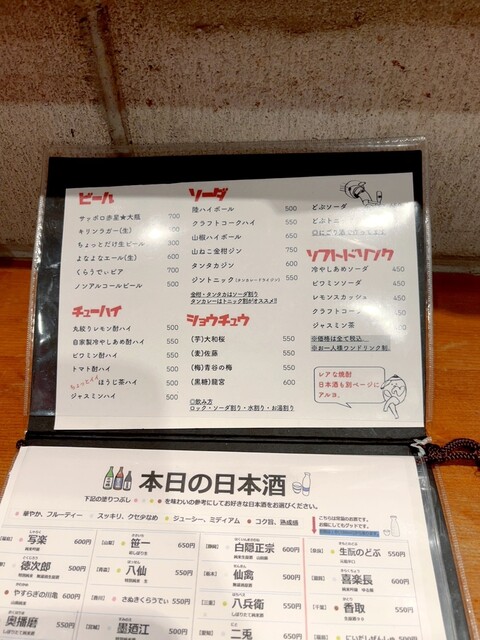 ビール
サッポロ赤星★大瓶 700
キリンラガー(生) 600
ちょっとだけ生ビール 300
よなよなエール(生) 600
くらうでぃビア 700
ノンアルコールビール 500
チューハイ
丸絞りレモン酎ハイ 500
自家製冷やしあめ酎ハイ 500
ビワミン酎ハイ 500
トマト酎ハイ 500
ちょっとイイ ほうじ茶ハイ 500
ジャスミンハイ 500
ソーダ
陸ハイボール 500
クラフトコークハイ 550
山椒ハイボール 650
山ねこ金柑ジン 750
タンタカジン 600
ジントニック(タンカレードライジン) 550
金柑・タンタカはソーダ割り
タンカレーはトニック割がオススメ!!
ショウチュウ
(芋)大和桜 550
(麦)佐藤 550
(梅)青谷の梅 550
(黒糖)龍宮 600
◎飲み方
ロック・ソーダ割り・水割り・お湯割り
どぶソーダ
どぶトニ
◎にごり酒で作ってます
ソフトドリンク
冷やしあめソーダ 450
ビワミンソーダ 450
レモンスカッシュ 450
クラフトコーラ
ジャスミン茶
※価格は全て税込
※お一人様ワンドリンク制
レアな焼酎
日本酒も別ページに
アルヨ。
本日の日本酒
下記の塗りつぶし を味わいの参考にしてお好きな日本酒をお選びください。
華やか、フルーティー スッキリ、クセ少なめ ジューシー、ミディアム コク旨、熟成感
写楽 600円
笹一 650円
白隠正宗 600円
生酛のどぶ 550円
徳次郎
八仙 550円
仙禽 550円
喜楽長 600円
やすらぎの川亀 600円
さぬきくらうでぃ 550円
八兵衛 550円
香取 550円
奥播磨 550円
墨廼江 500円
二兎